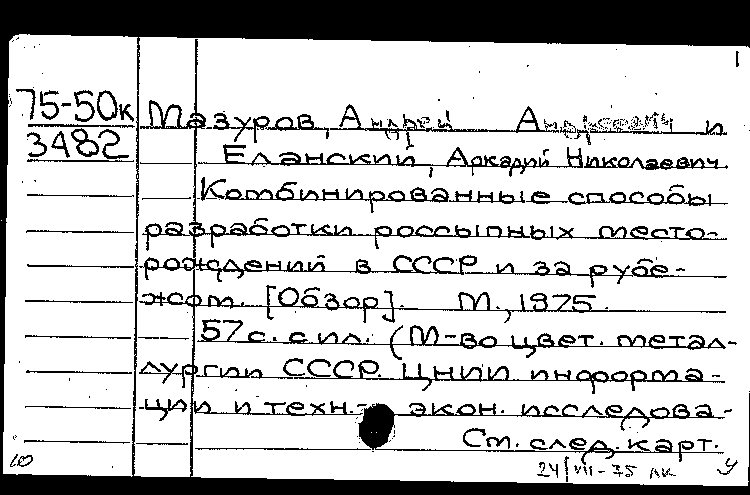 1
75-50к Мазуров, Андрей Андреевич и
3482 Еланский, Аркадий Николаевич.
Комбинированные способы
разработки россыпных место-
рождений в СССР и за рубе-
жом. [Обзор]. М., 1975.
57 с. с ил. (М-во цвет. метал-
лургии СССР. ЦНИИ информа-
ции и техн.- экон. исследова-
См. след. карт.
ю 24/VII-75 лк У